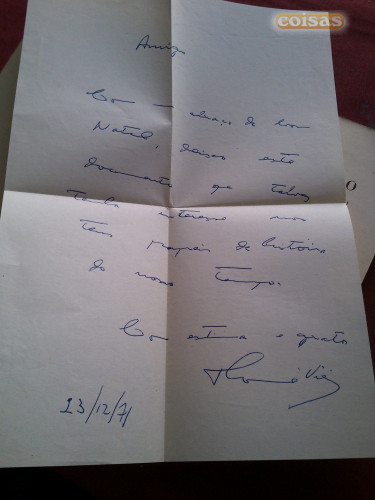 coisas
Amigo
Com um abraço de bom
Natal, deixo este
documento que talvez
tenha interesse nos
teus papéis de história
do nosso tempo.
Com estima e grato
23/12/71